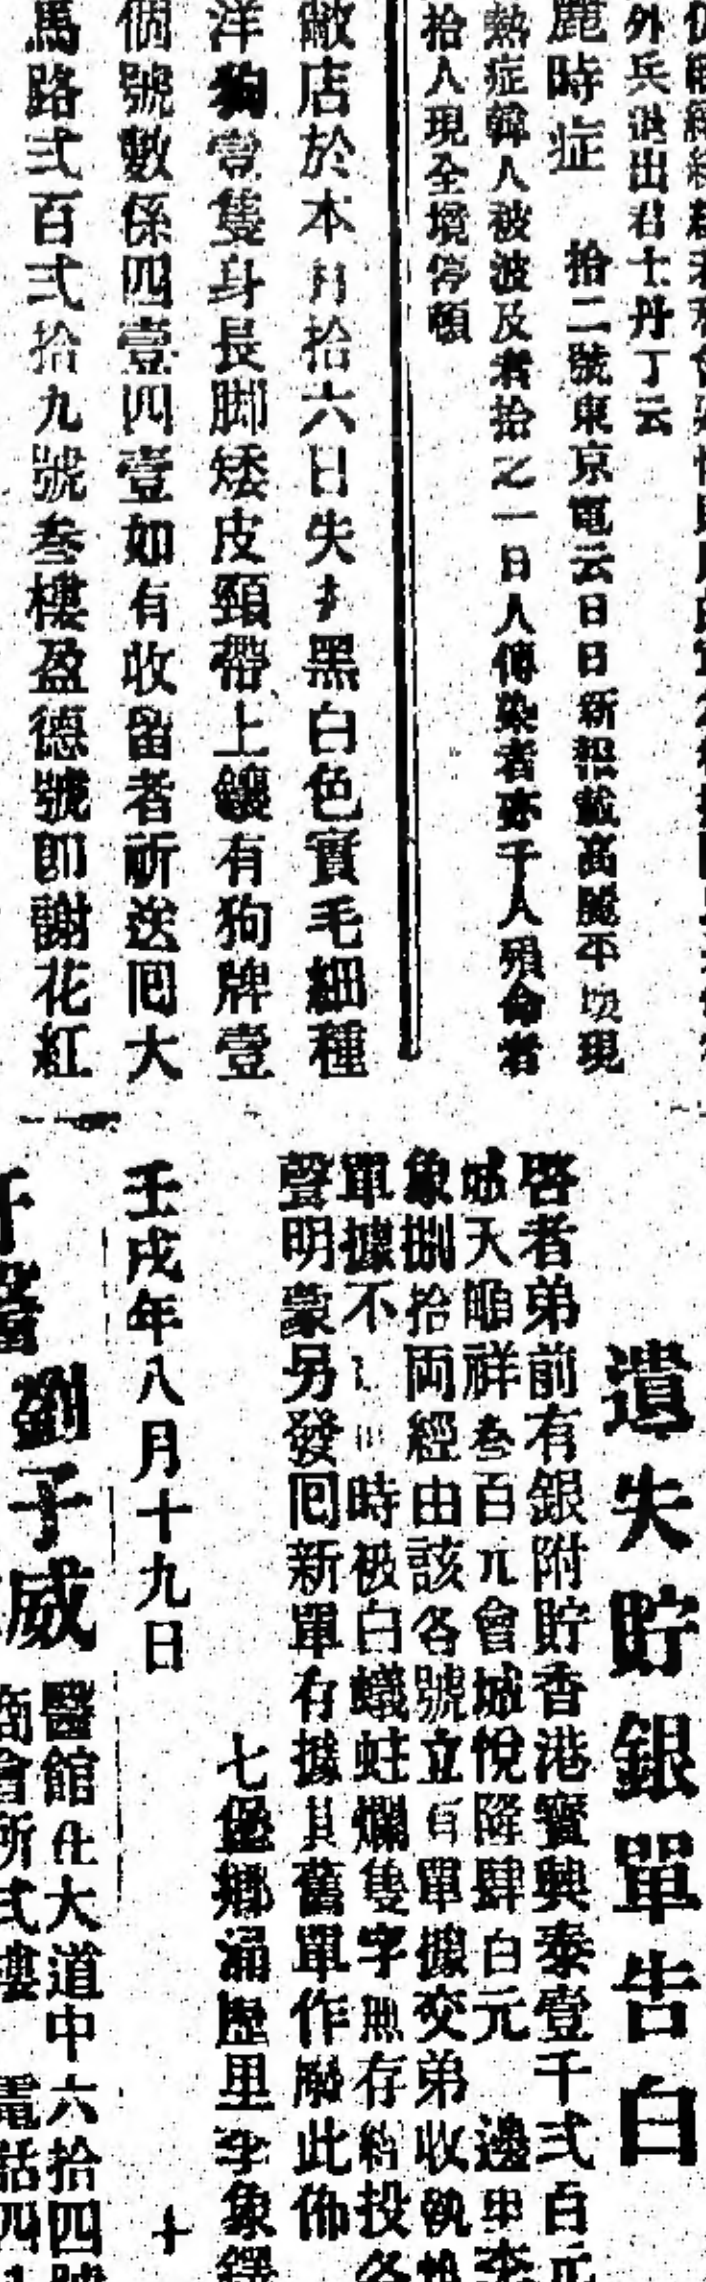 外兵退出君士丹丁云
麗時症　拾二號東京電云日日新報載高麗平壤現
熱症韓人被波及者拾之一日人傳染者亦千人殞命者
拾人現全境停頓
敝店於本月拾六日失去黑白色實毛細種
洋狗壹隻身長脚矮皮頸帶上鑲有狗牌壹
個號數係四壹四壹如有收留者祈送囘大
馬路弍百弍拾九號叁樓盈德號卽謝花紅
遺失貯銀單告白
啓者弟前有銀附貯香港寶興泰壹千弍百元
城天順祥叁百元會城悅隆肆百元　邊申李
象捌拾両經由該各號立有單據交弟收執
單據不 時被白蟻蛀爛隻字無存 投各
聲明蒙另發囘新單有據其舊單作廢此佈
七堡鄉涌歷里李象鐸
壬戌年八月十九日
劉子威
醫館在大道中六拾四號
商會所弍樓　電話四